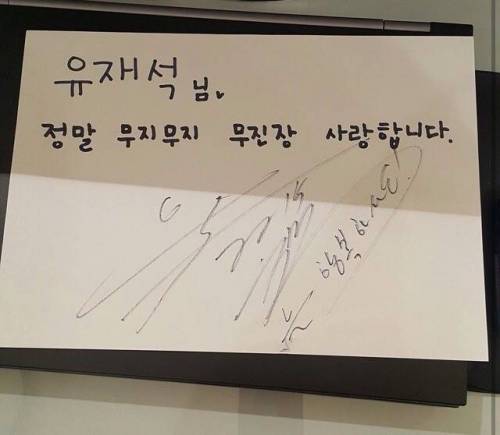 유재석 님.
정말 무지무지 무진장 사랑합니다.
늘 행복하세요!